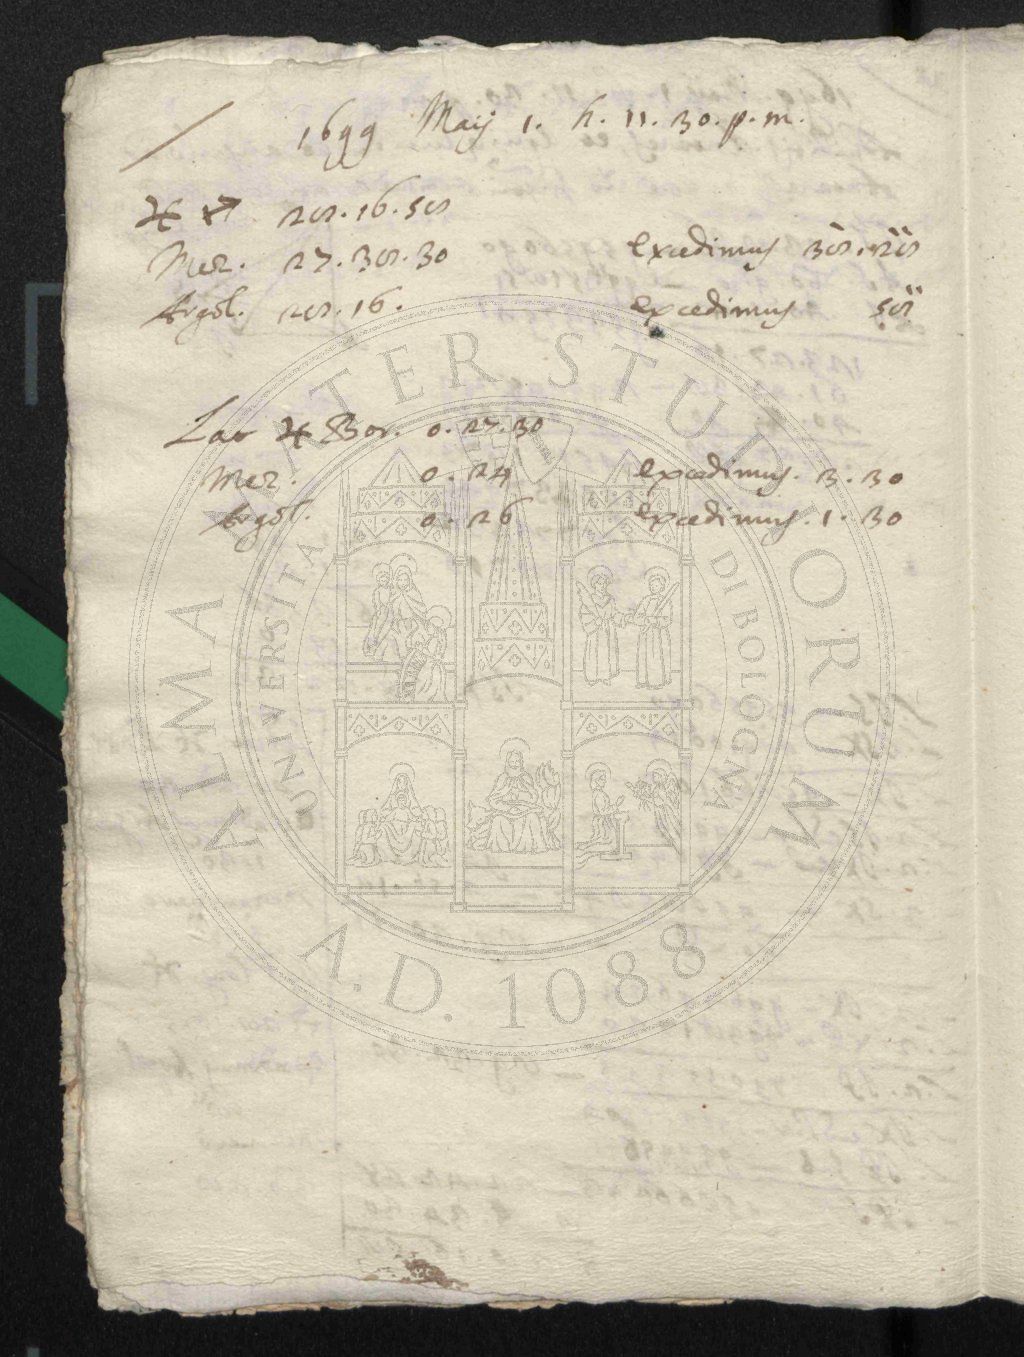 1699 Maij 1. h. 11. 30. p. m.
♃ ♐ 28. 16. 58
Mer. 27. 38. 30 excedimus 38'. 28''
Argol. 28. 16. excedimus 58''
Lat ♃ Bor. 0. 27. 30
Mer. 0. 24 excedimus. 3. 30
Argol. 0. 26 excedimus. 1. 30
ALMA MATER STUDIORUM
UNIVERSITÀ DI BOLOGNA
A.D. 1088